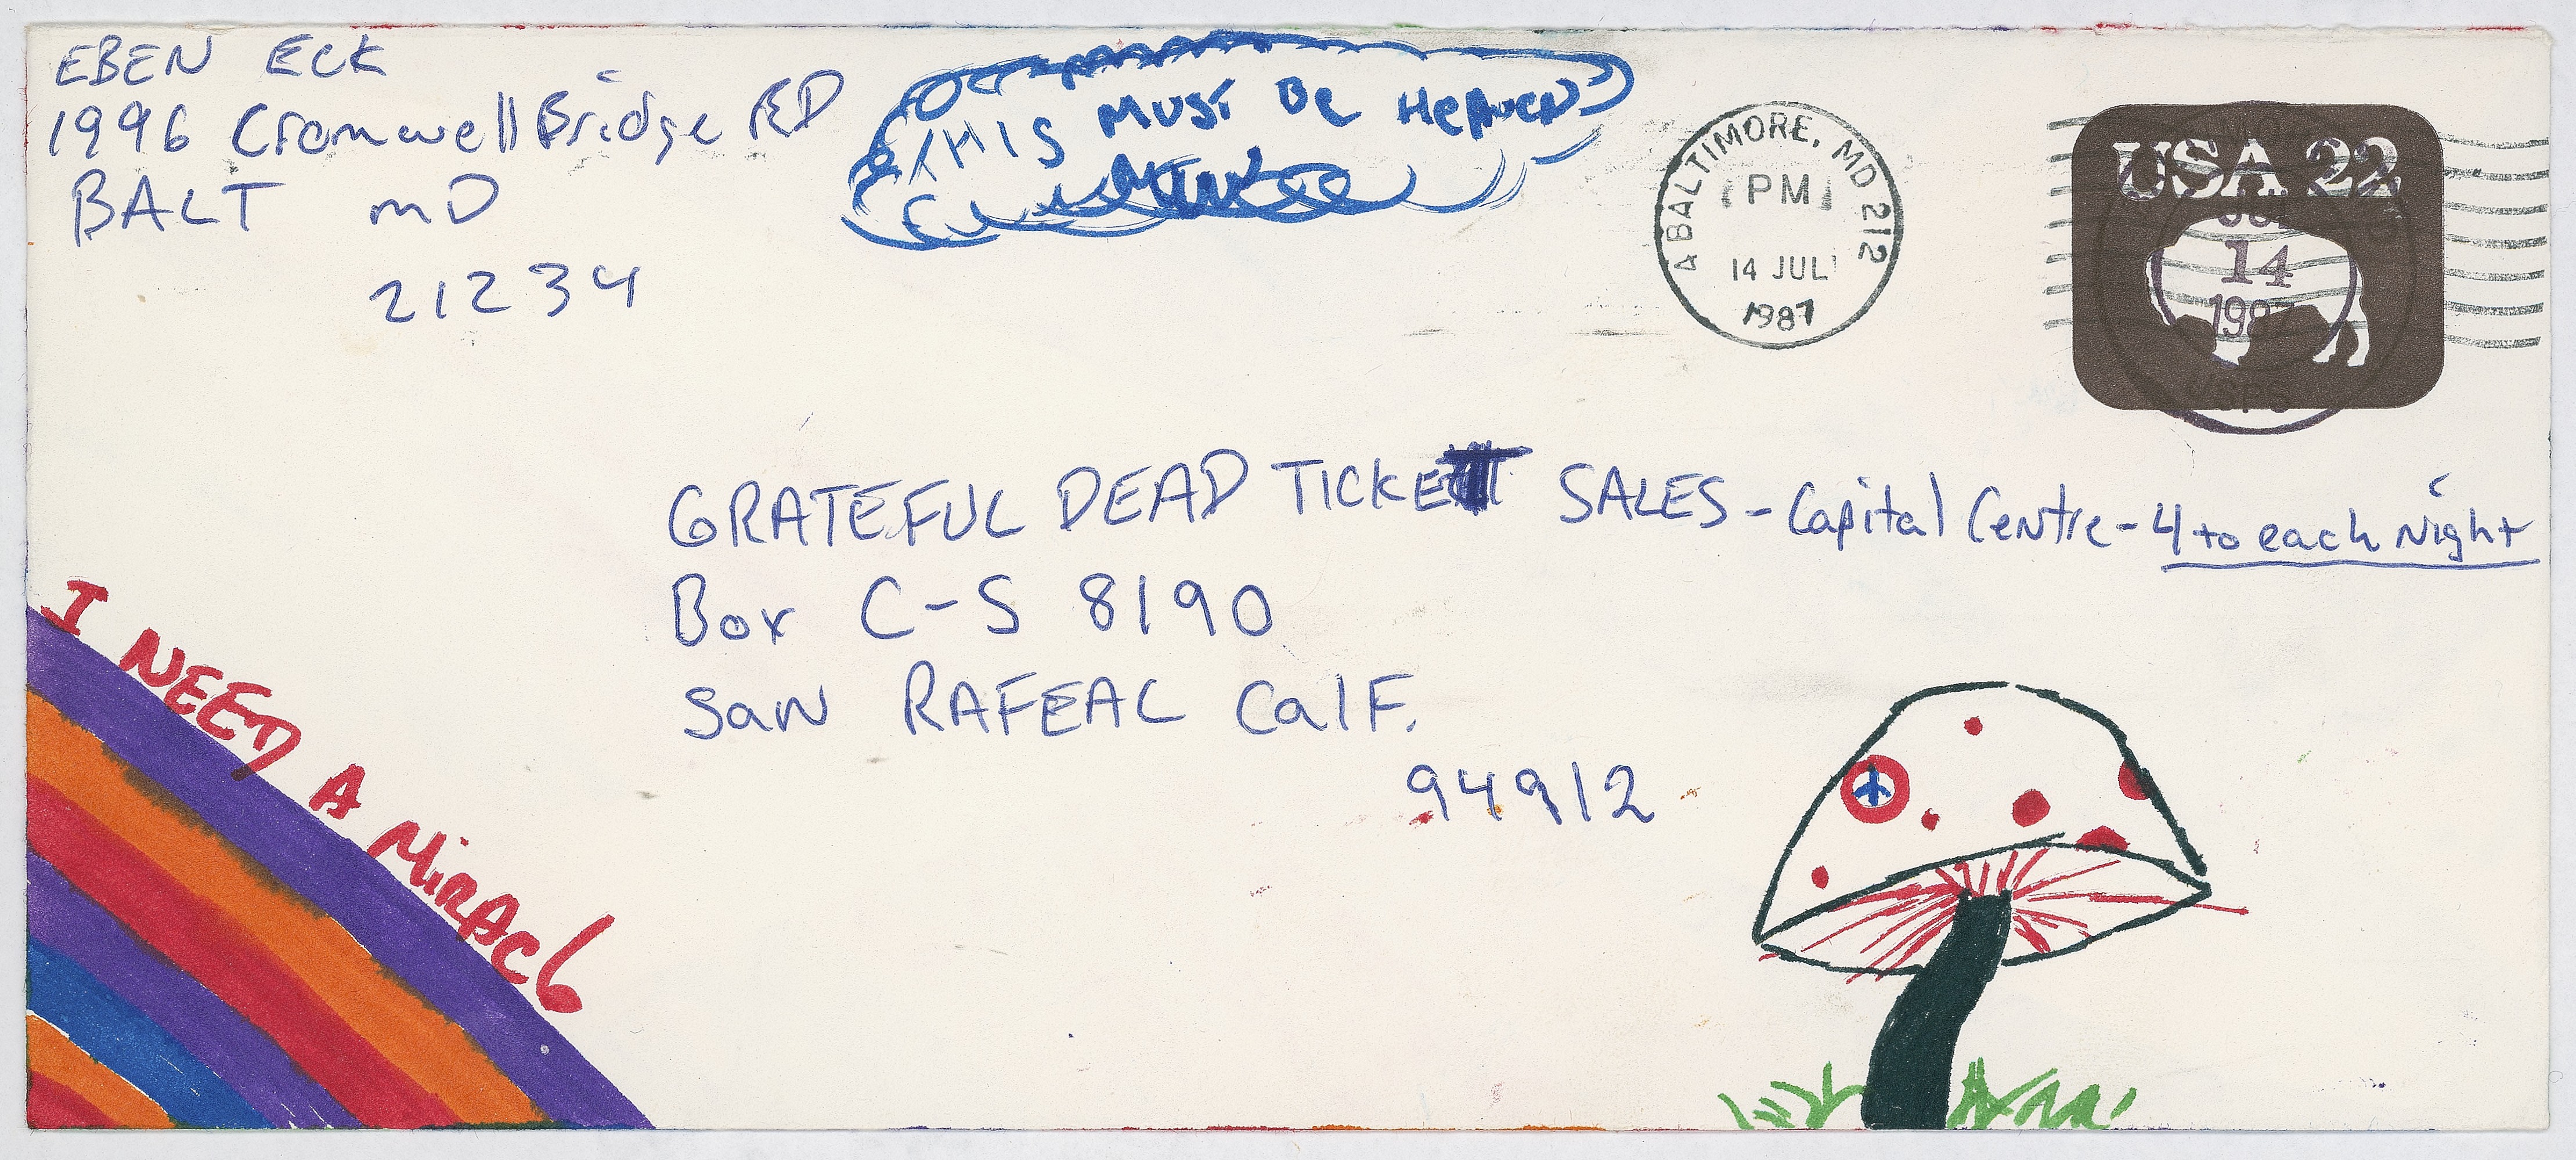 EBEN ECK
1996 Cromwell Bridge RD
BALT MD
21234
THIS MUST BE HEAVEN
A BALTIMORE, MD 212
PM
14 JUL
1987
USA 22
JUL
14
1987
USPS
GRATEFUL DEAD TICKET SALES - Capital Centre - 4 to each Night
Box C-S 8190
San RAFEAL CalF.
94912
I NEED A MiRACLE